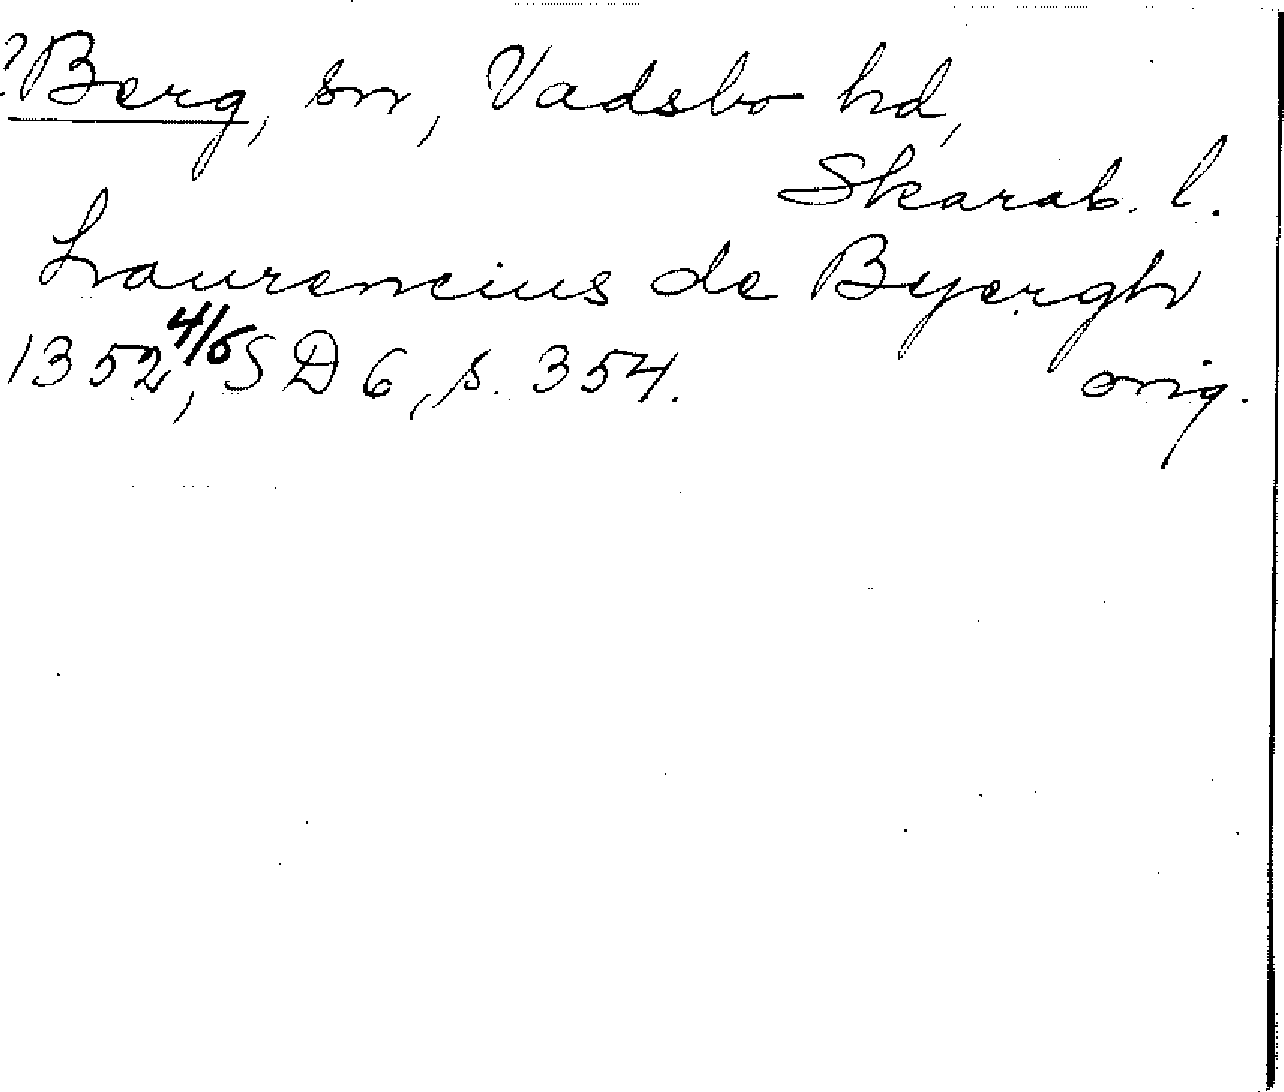 ?Berg, sn, Vadsbo hd,
Skarab. l.
Laurencius de Byergh
1352 4/6, SD 6, s. 354. orig.